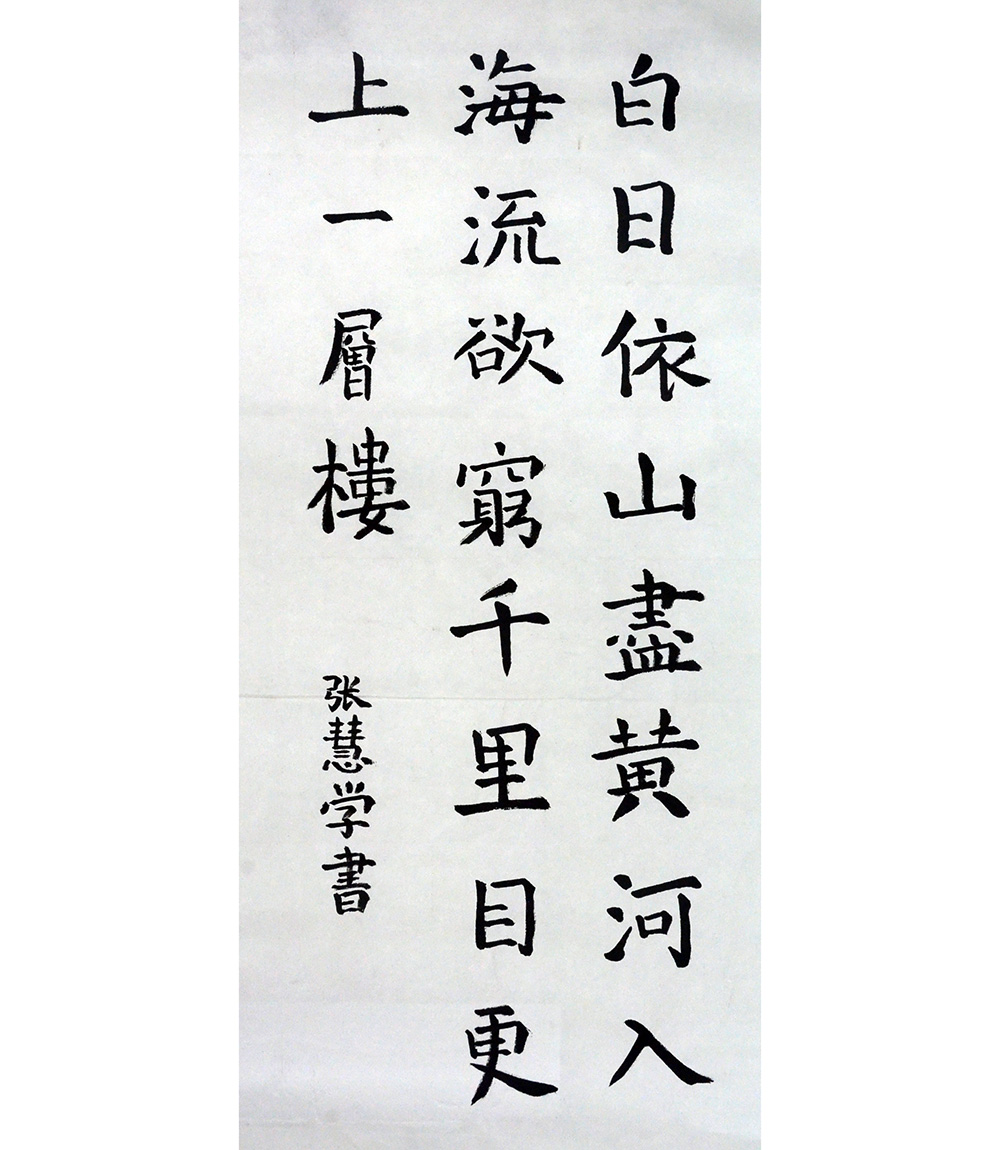 白日依山盡黄河入
海流欲窮千里目更
上一層樓
张慧学書